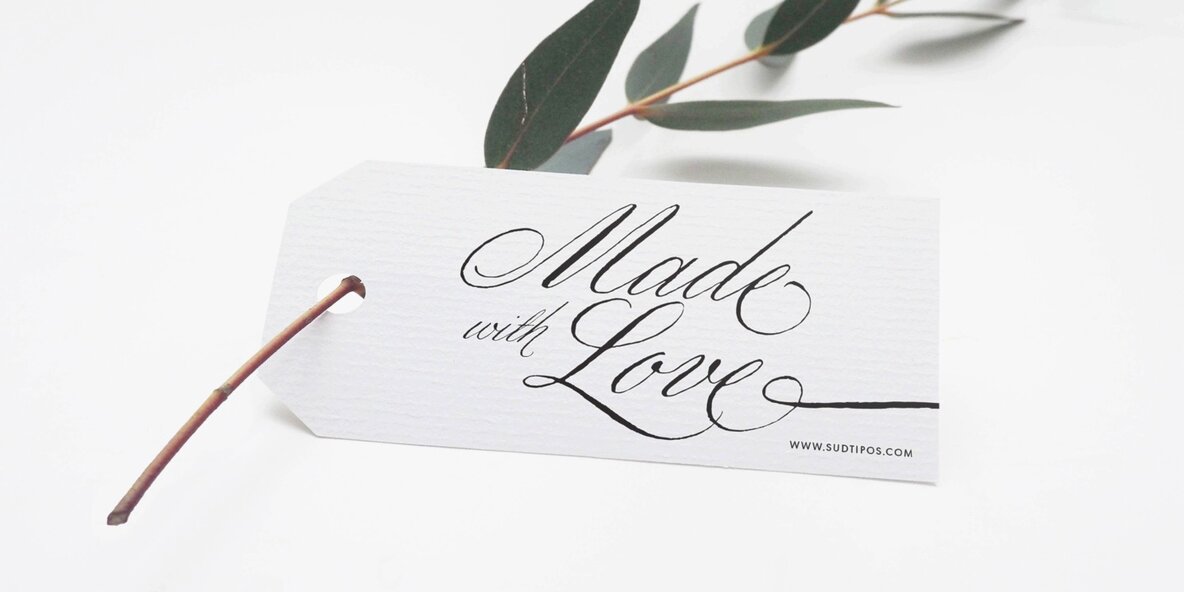 Made
with Love
WWW.SUDTIPOS.COM